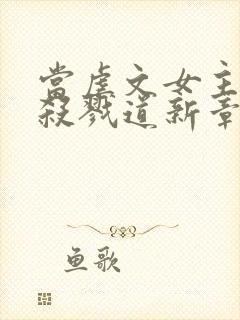 當虐文女主
殺戮道新章
鱼歌